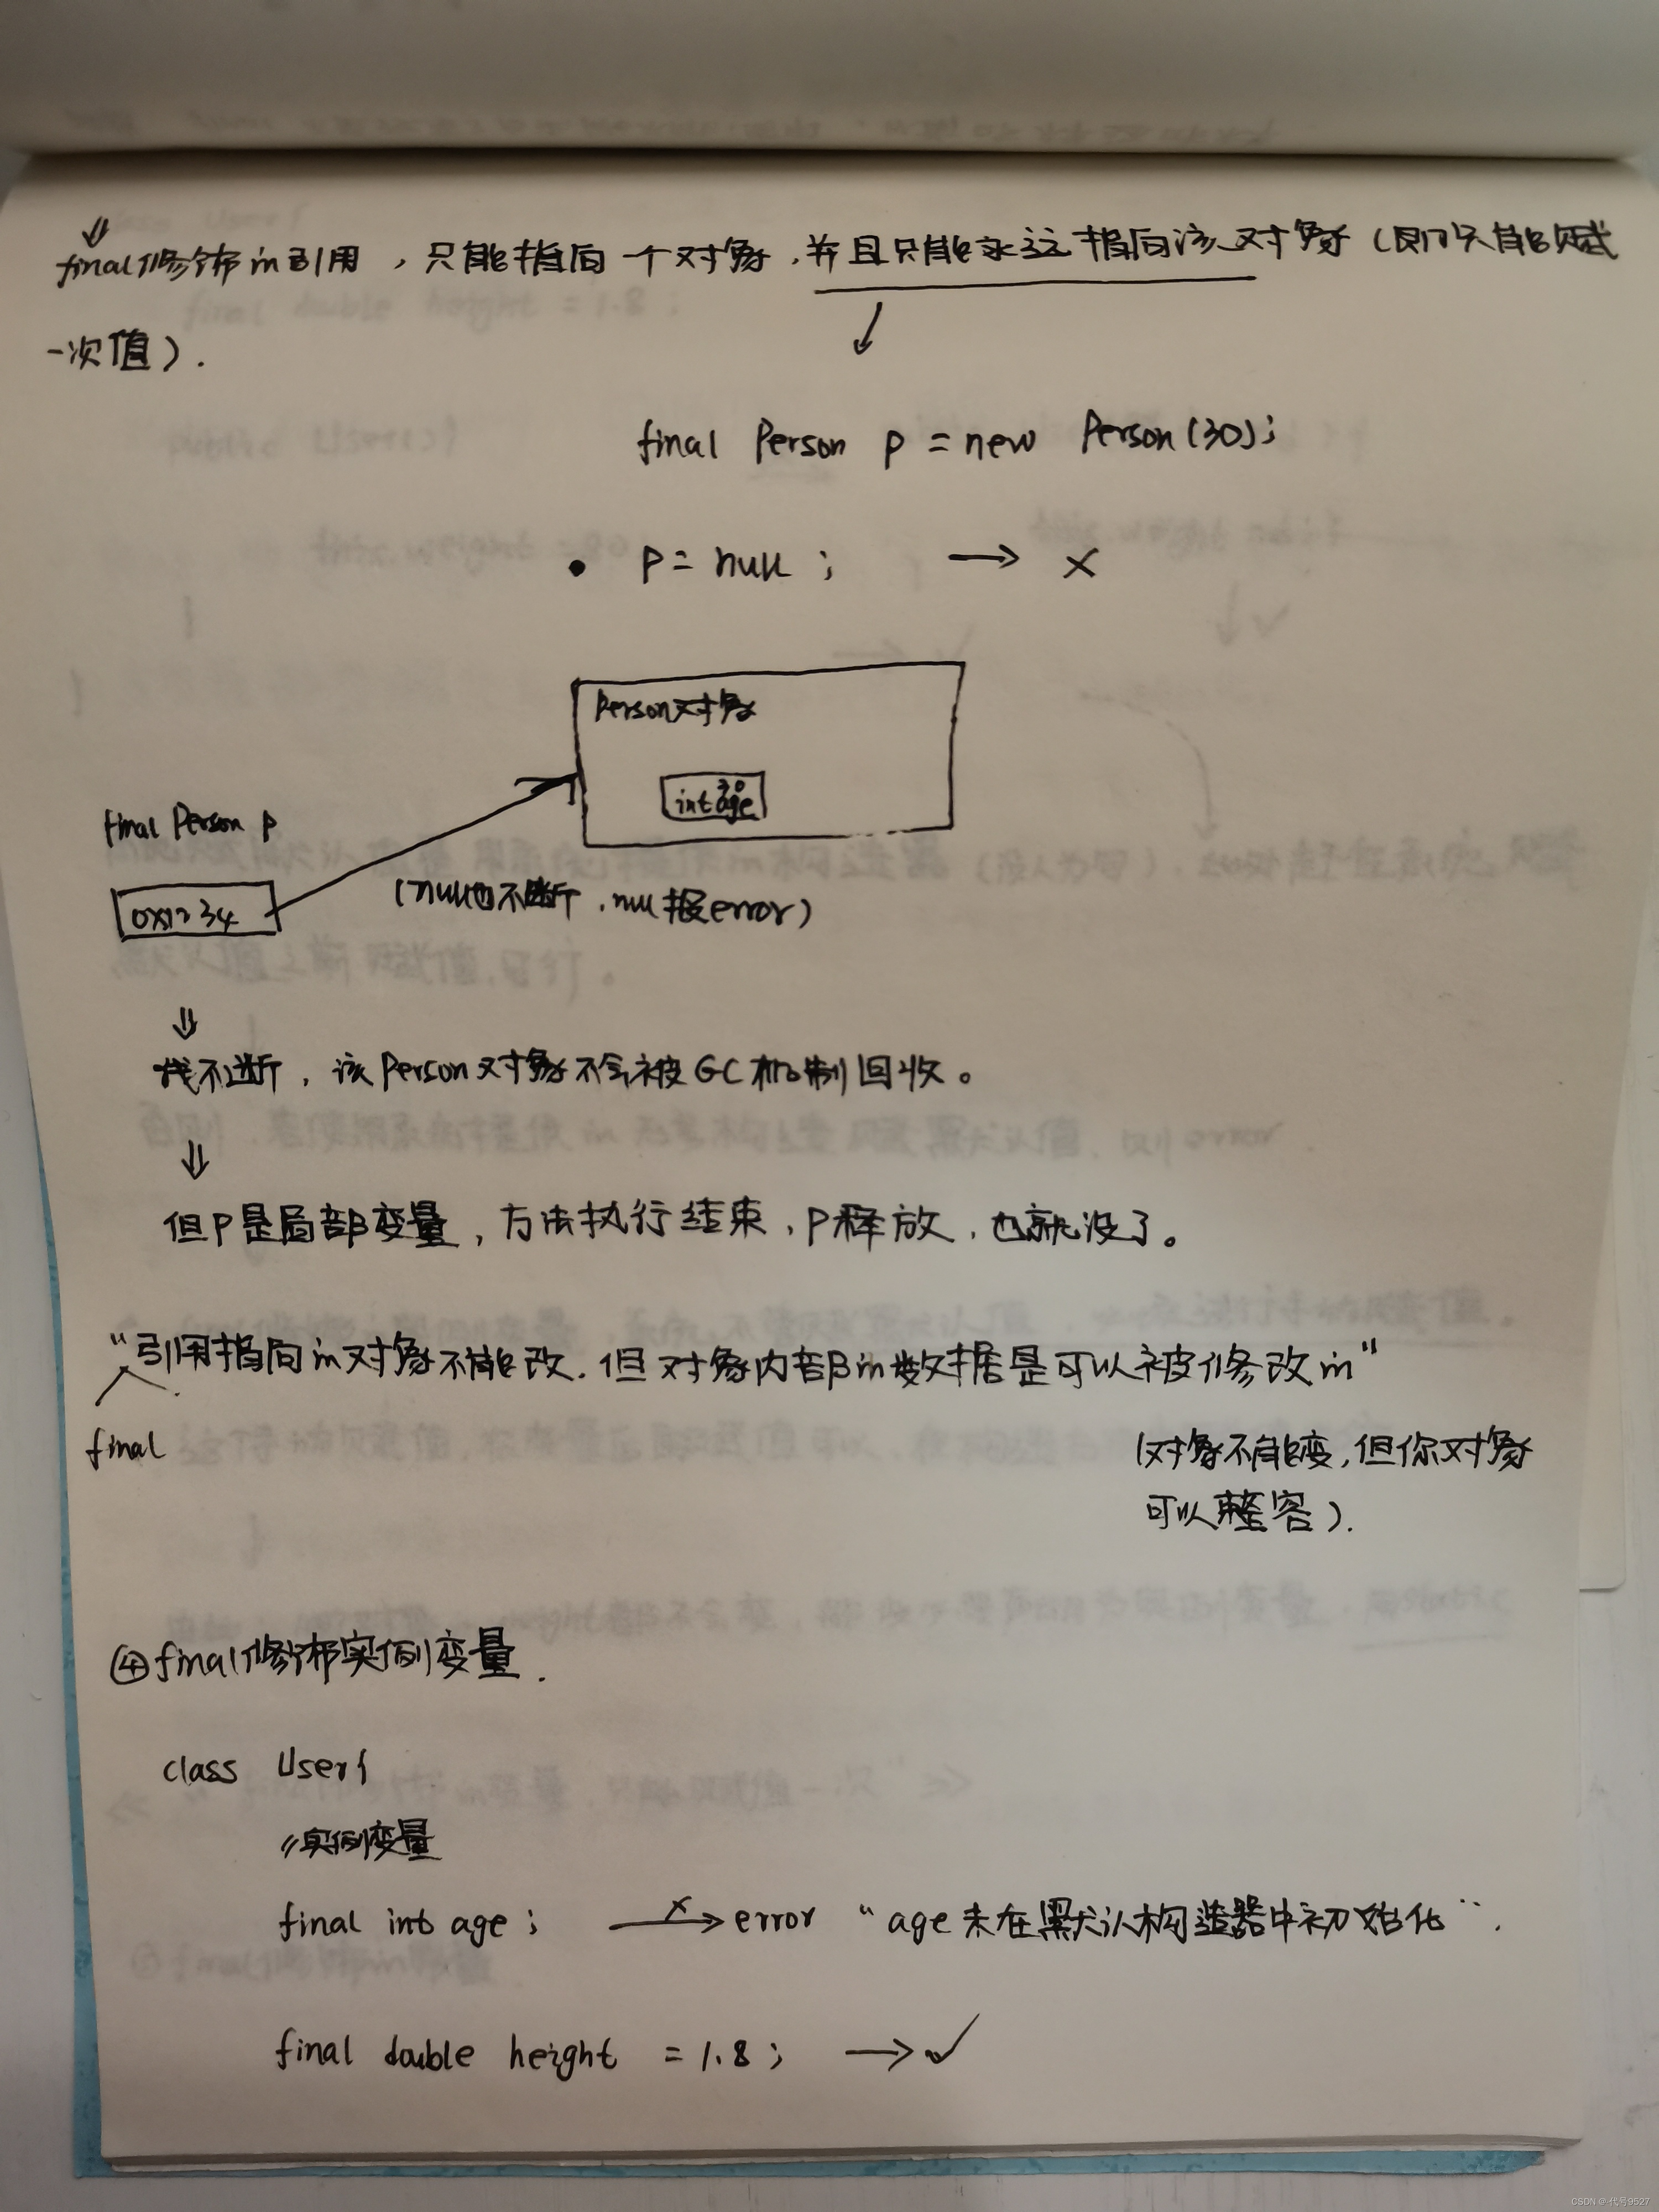 ⇓
final修饰的引用，只能指向一个对象，并且只能永远指向该对象（即只能赋
一次值）.
final Person p = new Person(30);
• p = null ; → ×
Person对象
30
int age
final Person p
0x1234
(null也不断，null报error)
⇓
线不断，该Person对象不会被GC机制回收。
⇓
但P是局部变量，方法执行结束，P释放，也就没了。
“引用指向的对象不能改，但对象内部的数据是可以被修改的”
final
(对象不能变，但你对象
可以整容).
④final修饰实例变量.
class User{
//实例变量
final int age ; ×→ error “age未在默认构造器中初始化”.
final double height = 1.8 ; → ✓
CSDN @ 代号9527